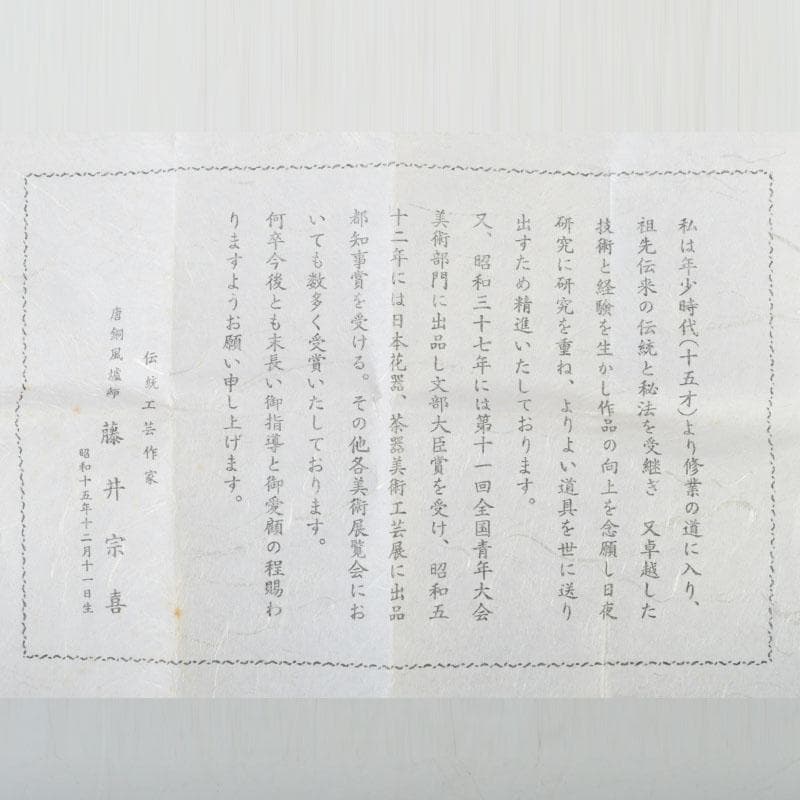 私は年少時代（十五才）より修業の道に入り、
祖先伝来の伝統と秘法を受継ぎ　又卓越した
技術と経験を生かし作品の向上を念願し日夜
研究に研究を重ね、よりよい道具を世に送り
出すため精進いたしております。
又、昭和三十七年には第十一回全国青年大会
美術部門に出品し文部大臣賞を受け、昭和五
十二年には日本花器、茶器美術工芸展に出品
都知事賞を受ける。その他各美術展覧会にお
いても数多く受賞いたしております。
何卒今後とも末長い御指導と御愛顧の程賜わ
りますようお願い申し上げます。
伝統工芸作家
唐銅風爐師　藤井宗喜
昭和十五年十二月十一日生